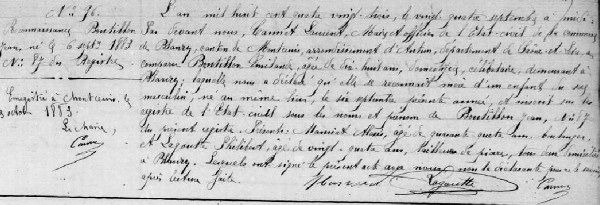 N° 76.
Reconnaissance Boutillon
Jean, né le 6 Septbre 1883
N° 57 du Registre
Enregistré à Montcenis, le
3 octobre 1883
Le Maire,
L'an mil huit cent quatre vingt trois, le vingt quatre septembre à midi
Par devant nous, Laurent, Maire et officier de l'Etat-civil de la commune
de Blanzy, canton de Montcenis, arrondissement d'Autun, département de Saône-et-Loire, a
comparu Boutillon, âgée de dix huit ans, domestique, célibataire, demeurant à
Blanzy, laquelle nous a déclaré qu'elle se reconnaît mère d'un enfant du sexe
masculin, né au même lieu, le six septembre présente année, et inscrit sur les
registres de l'Etat-civil sous les noms et prénom de Boutillon Jean, N° 57
du présent registre. Présents: Alexis, âgé de quarante quatre ans, boulanger
et Lagoutte Philibert, âgé de vingt quatre ans, tailleur de pierres, tous deux domiciliés
à Blanzy. Lesquels ont signé le présent acte avec nous, non la déclarante pour ne le savoir
après lecture faite.
Lagoutte